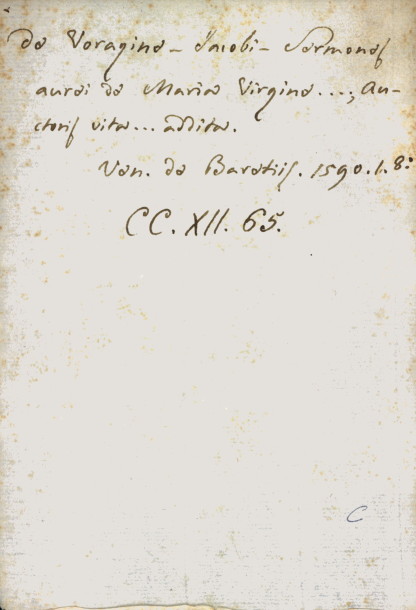 de Voragine - Jacobi - Sermones
aurei de Maria Virgine ....; Au-
ctoris vita ... addita.
Ven. de Baretiis. 1590. 1. 8:
CC. XII. 65.
C